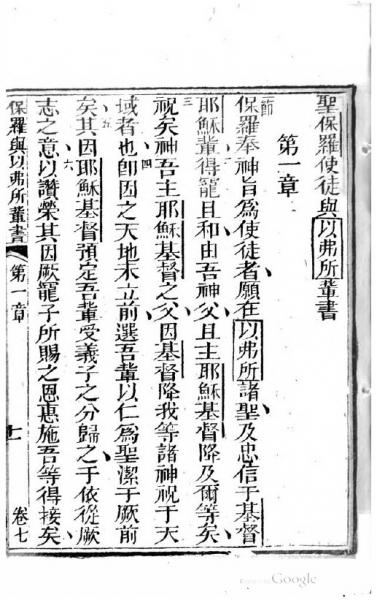 聖保羅使徒與以弗所輩書
第一章
節
保羅奉神旨為使徒者願在以弗所諸聖及忠信于基督
三
耶穌輩得寵且和由吾神父且主耶穌基督降及爾等矣
祝矣神吾主耶穌基督之父因基督降我等諸神祝于天
四
域者也即因之天地未立前選吾輩以仁為聖潔于厥前
五
矣其因耶穌基督預定吾輩受義子之分歸之于依從厥
六
志之意以讚榮其因厥寵子所賜之恩惠施吾等得接矣
保羅與以弗所輩書
第一章
卷七
Google